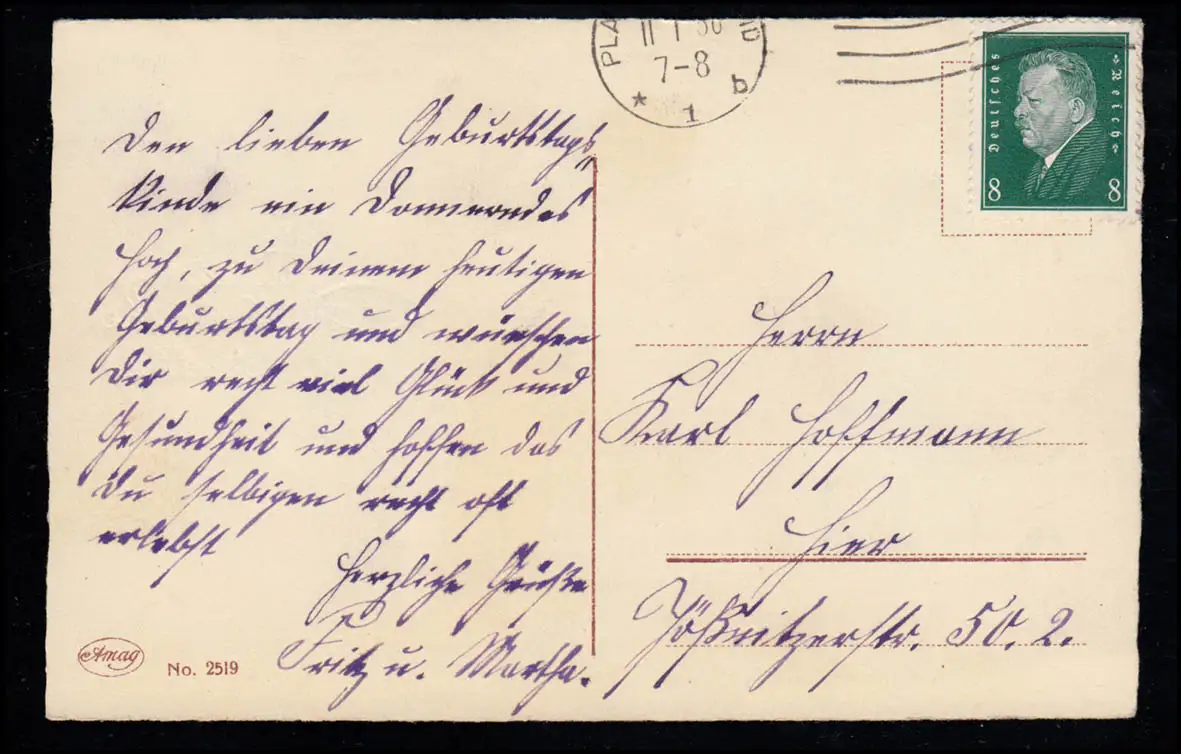 PLA
11 1 30
ND
7-8
* 1 b
Deutsches Reich
8 8
Den lieben Geburtstags„
kinde ein Donnerndes
Hoch, zu Deinem heutigen
Geburtstag und wünschen
Dir recht viel Glück und
Gesundheit und hoffen das
du selbigen recht oft
erlebst
Herzliche Grüße
Fritz u. Martha.
Herrn
Karl Hoffmann
Hier
Jößnitzerstr. 50. 2.
Amag
No. 2519